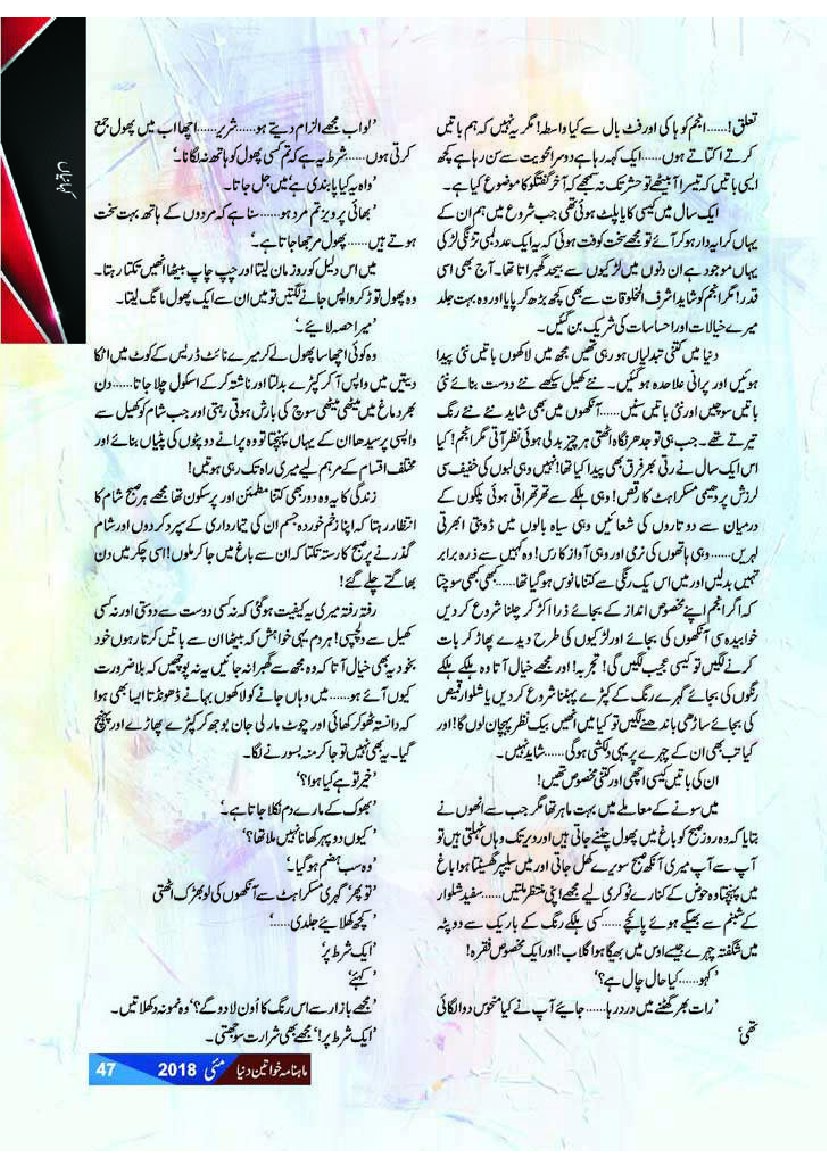 تعلق!......انجم کو ہاکی اور فٹ بال سے کیا واسطہ! مگر یہ نہیں کہ ہم باتیں
کرتے اکتاتے ہوں......ایک کہہ رہا ہے دوسرا محویت سے سن رہا ہے کچھ
ایسی باتیں کہ تیسرا آبیٹھے تو حشر تک نہ سمجھے کہ آخر گفتگو کا موضوع کیا ہے۔
ایک سال میں کیسی کایا پلٹ ہوئی تھی جب شروع میں ہم ان کے
یہاں کرایہ دار ہو کر آئے تو مجھے سخت کوفت ہوئی کہ یہ ایک عدد لمبی تڑنگی لڑکی
یہاں موجود ہے ان دنوں میں لڑکیوں سے بیحد گھبراتا تھا۔ آج بھی اسی
قدر! مگر انجم کو شاید اشرف المخلوقات سے بھی کچھ بڑھ کر پایا اور وہ بہت جلد
میرے خیالات اور احساسات کی شریک بن گئیں۔
دنیا میں کتنی تبدلیاں ہو رہی تھیں مجھ میں لاکھوں باتیں نئی پیدا
ہوئیں اور پرانی علاحدہ ہوگئیں۔ نئے کھیل سیکھے نئے دوست بنائے نئی
باتیں سوچیں اور نئی باتیں سنیں......آنکھوں میں بھی شاید نئے نئے رنگ
تیرتے تھے۔ جب ہی تو جدھر نگاہ اٹھتی ہر چیز بدلی ہوئی نظر آتی مگر انجم! کیا
اس ایک سال نے رتی بھر فرق بھی پیدا کیا تھا! نہیں وہی لبوں کی خفیف سی
لرزش پر دھیمی مسکراہٹ کا رقص! وہی ہلکے سے تھرتھراتی ہوئی پلکوں کے
درمیان سے دو تاروں کی شعائیں وہی سیاہ بالوں میں ڈوبتی ابھرتی
لہریں......وہی ہاتھوں کی نرمی اور وہی آواز کا رس! وہ کہیں سے ذرہ برابر
نہیں بدلیں اور میں اس یک رنگی سے کتنا مانوس ہو گیا تھا......کبھی کبھی سوچتا
کہ اگر انجم اپنے مخصوص انداز کے بجائے ذرا اکڑ کر چلنا شروع کر دیں
خوابیدہ سی آنکھوں کی بجائے اور لڑکیوں کی طرح دیدے پھاڑ کر بات
کرنے لگیں تو کیسی عجیب لگیں گی! تجربہ! اور مجھے خیال آتا وہ ہلکے ہلکے
رنگوں کی بجائے گہرے رنگ کے کپڑے پہننا شروع کر دیں یا شلوار قمیص
کی بجائے ساڑھی باندھنے لگیں تو کیا میں انھیں بیک نظر پہچان لوں گا! اور
کیا تب بھی ان کے چہرے پر یہی دلکشی ہوگی......شاید نہیں۔
ان کی باتیں کیسی اچھی اور کتنی مخصوص تھیں!
میں سونے کے معاملے میں بہت ماہر تھا مگر جب سے انھوں نے
بتایا کہ وہ روز صبح کو باغ میں پھول چننے جاتی ہیں اور دیر تک وہاں ٹہلتی ہیں تو
آپ سے آپ میری آنکھ صبح سویرے کھل جاتی اور میں سلیپر گھسیٹتا ہوا باغ
میں پہنچتا وہ حوض کے کنارے ٹوکری لیے مجھے اپنی منتظر ملتیں......سفید شلوار
کے شبنم سے بھیگے ہوئے پانچے......کسی ہلکے رنگ کے باریک سے دوپٹہ
میں شگفتہ چہرے جیسے اوس میں بھیگا ہوا گلاب! اور ایک مخصوص فقرہ!
'کہو......کیا حال چال ہے؟'
'رات بھر گھٹنے میں درد رہا......جانیے آپ نے کیا منحوس دوا لگائی
تھی'
'لو اب مجھے الزام دیتے ہو......شریر......اچھا اب میں پھول جمع
کرتی ہوں......شرط یہ ہے کہ تم کسی پھول کو ہاتھ نہ لگانا۔'
'واہ یہ کیا پابندی ہے' میں جل جاتا۔
'بھائی پرویز تم مرد ہو......سنا ہے کہ مردوں کے ہاتھ بہت سخت
ہوتے ہیں......پھول مرجھا جاتا ہے۔'
میں اس دلیل کو روز مان لیتا اور چپ چاپ بیٹھا انھیں تکتا رہتا۔
وہ پھول توڑ کر واپس جانے لگتیں تو میں ان سے ایک پھول مانگ لیتا۔
'میرا حصہ لایئے۔'
وہ کوئی اچھا سا پھول لے کر میرے نائٹ ڈریس کے کوٹ میں اٹکا
دیتیں میں واپس آکر کپڑے بدلتا اور ناشتہ کر کے اسکول چلا جاتا......دن
بھر دماغ میں میٹھی میٹھی سوچ کی بارش ہوتی رہتی اور جب شام کو کھیل سے
واپسی پر سیدھا ان کے یہاں پہنچتا تو وہ پرانے دوپٹوں کی پٹیاں بنائے اور
مختلف اقسام کے مرہم لیے میری راہ تک رہی ہوتیں!
زندگی کا یہ وہ دور بھی کتنا مطمئن اور پرسکون تھا مجھے ہر صبح شام کا
انتظار رہتا کہ اپنا زخم خوردہ جسم ان کی تیمارداری کے سپرد کردوں اور شام
گذرنے پر صبح کا رستہ تکتا کہ ان سے باغ میں جا کر ملوں! اسی چکر میں دن
بھاگتے چلے گئے!
رفتہ رفتہ میری یہ کیفیت ہو گئی کہ نہ کسی دوست سے دوستی اور نہ کسی
کھیل سے دلچسپی! ہر دم یہی خواہش کہ بیٹھا ان سے باتیں کرتا رہوں خود
بخود یہ بھی خیال آتا کہ وہ مجھ سے گھبرا نہ جائیں یہ نہ پوچھیں کہ بلا ضرورت
کیوں آئے ہو......میں وہاں جانے کو لاکھوں بہانے ڈھونڈتا ایسا بھی ہوا
کہ دانستہ ٹھوکر کھائی اور چوٹ مار لی جان بوجھ کر کپڑے پھاڑے اور پہنچ
گیا۔ یہ بھی نہیں تو جا کر منہ بسورنے لگا۔
'خیر تو ہے کیا ہوا؟'
'بھوک کے مارے دم نکلا جاتا ہے۔'
'کیوں دوپہر کھانا نہیں ملا تھا؟'
'وہ سب ہضم ہوگیا۔'
'تو پھر' گہری مسکراہٹ سے آنکھوں کی لو بھڑک اٹھتی
'کچھ کھلایئے جلدی......'
'ایک شرط پر'
'کہئے'
'مجھے بازار سے اس رنگ کا اُون لا دو گے؟' وہ نمونہ دکھلاتیں۔
'ایک شرط پر!' مجھے بھی شرارت سوجھتی۔
ماہنامہ خواتین دنیا مئی 2018 47